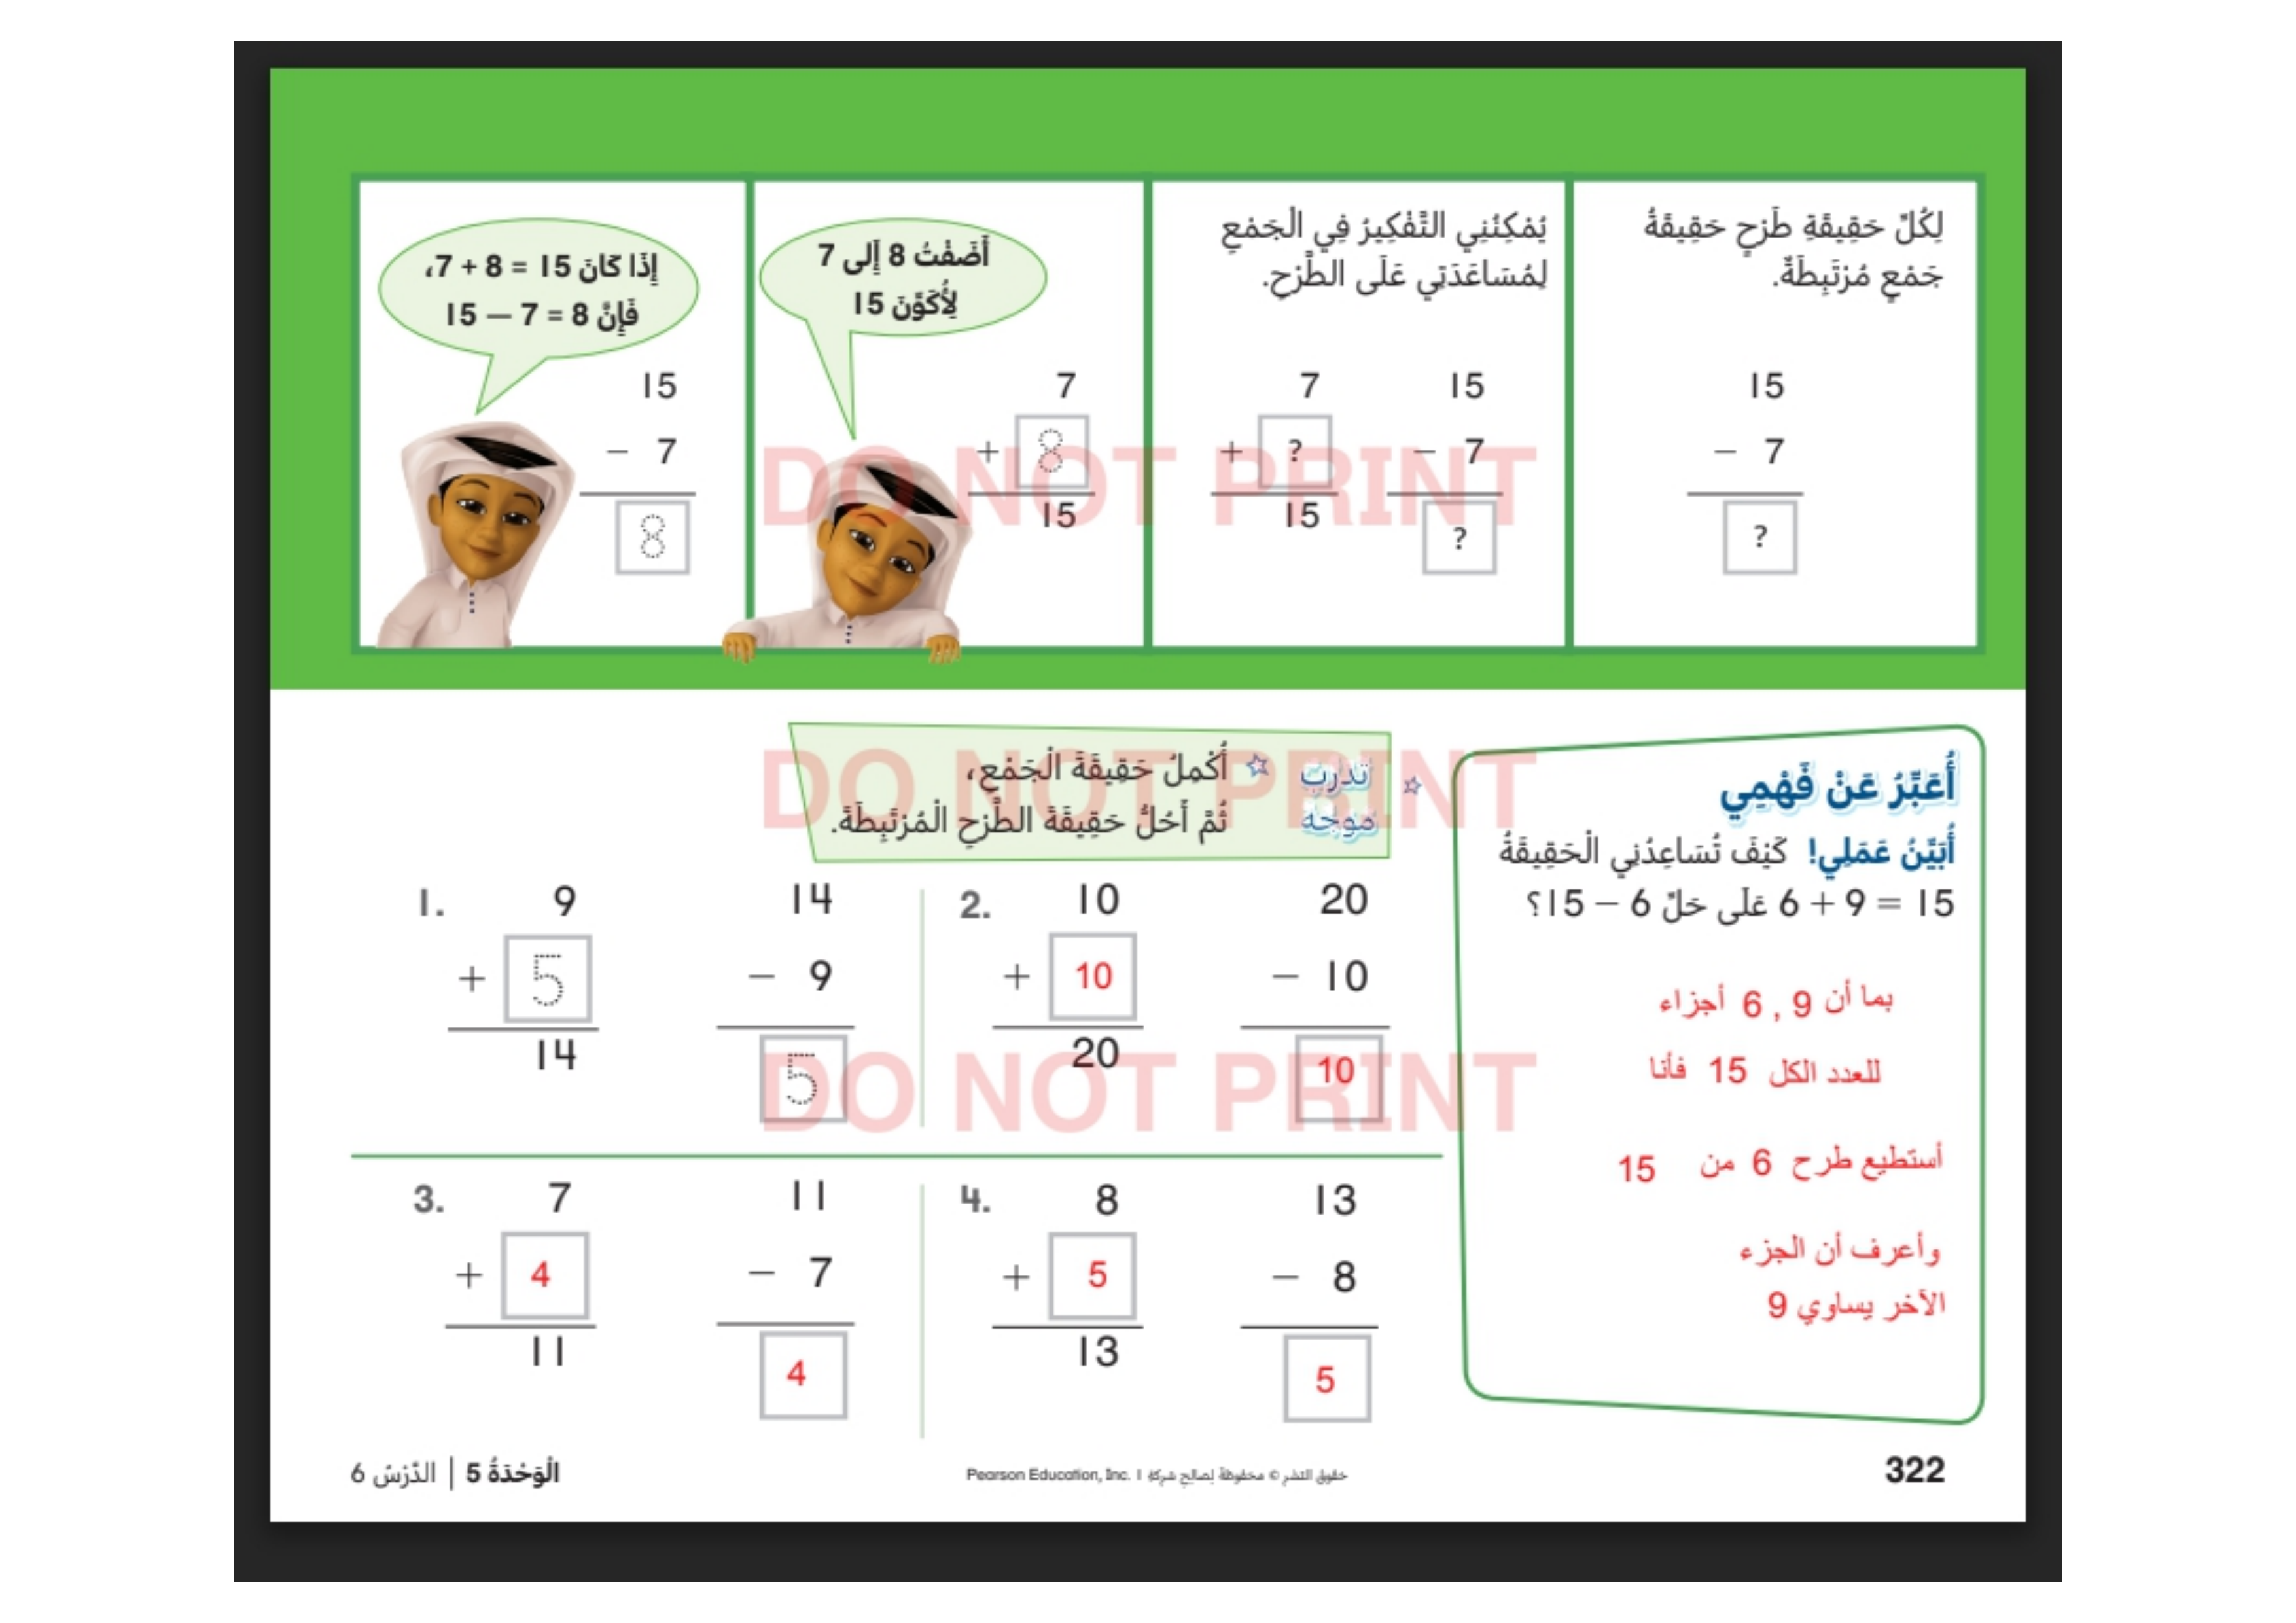 لِكُلِّ حَقِيقَةِ طَرْحٍ حَقِيقَةُ
جَمْعٍ مُرْتَبِطَةٌ.
15
− 7
?
يُمْكِنُنِي التَّفْكِيرُ فِي الْجَمْعِ
لِمُسَاعَدَتِي عَلَى الطَّرْحِ.
15
− 7
?
7
+ ?
15
أَضَفْتُ 8 إِلى 7
لِأُكَوِّنَ 15
7
+ 8
15
إِذَا كَانَ 15 = 8 + 7،
فَإِنَّ 8 = 7 — 15
15
− 7
8
DO NOT PRINT
أُعَبِّرُ عَنْ فَهْمِي
أُبَيِّنُ عَمَلِي! كَيْفَ تُسَاعِدُنِي الْحَقِيقَةُ
15 = 9 + 6 عَلَى حَلِّ 6 − 15؟
بما أن 9 , 6 أجزاء
للعدد الكل 15 فأنا
أستطيع طرح 6 من 15
وأعرف أن الجزء
الآخر يساوي 9
☆ تدارب ☆ أُكْمِلُ حَقِيقَةَ الْجَمْعِ،
موجّه ثُمَّ أَحُلُّ حَقِيقَةَ الطَّرْحِ الْمُرْتَبِطَةَ.
DO NOT PRINT
1.
9
+ 5
14
14
− 9
5
2.
10
+ 10
20
20
− 10
10
DO NOT PRINT
3.
7
+ 4
11
11
− 7
4
4.
8
+ 5
13
13
− 8
5
322
حقوق النشر © محفوظة لصالح شركة Pearson Education, Inc. I
الْوَحْدَةُ 5 | الدَّرْسُ 6